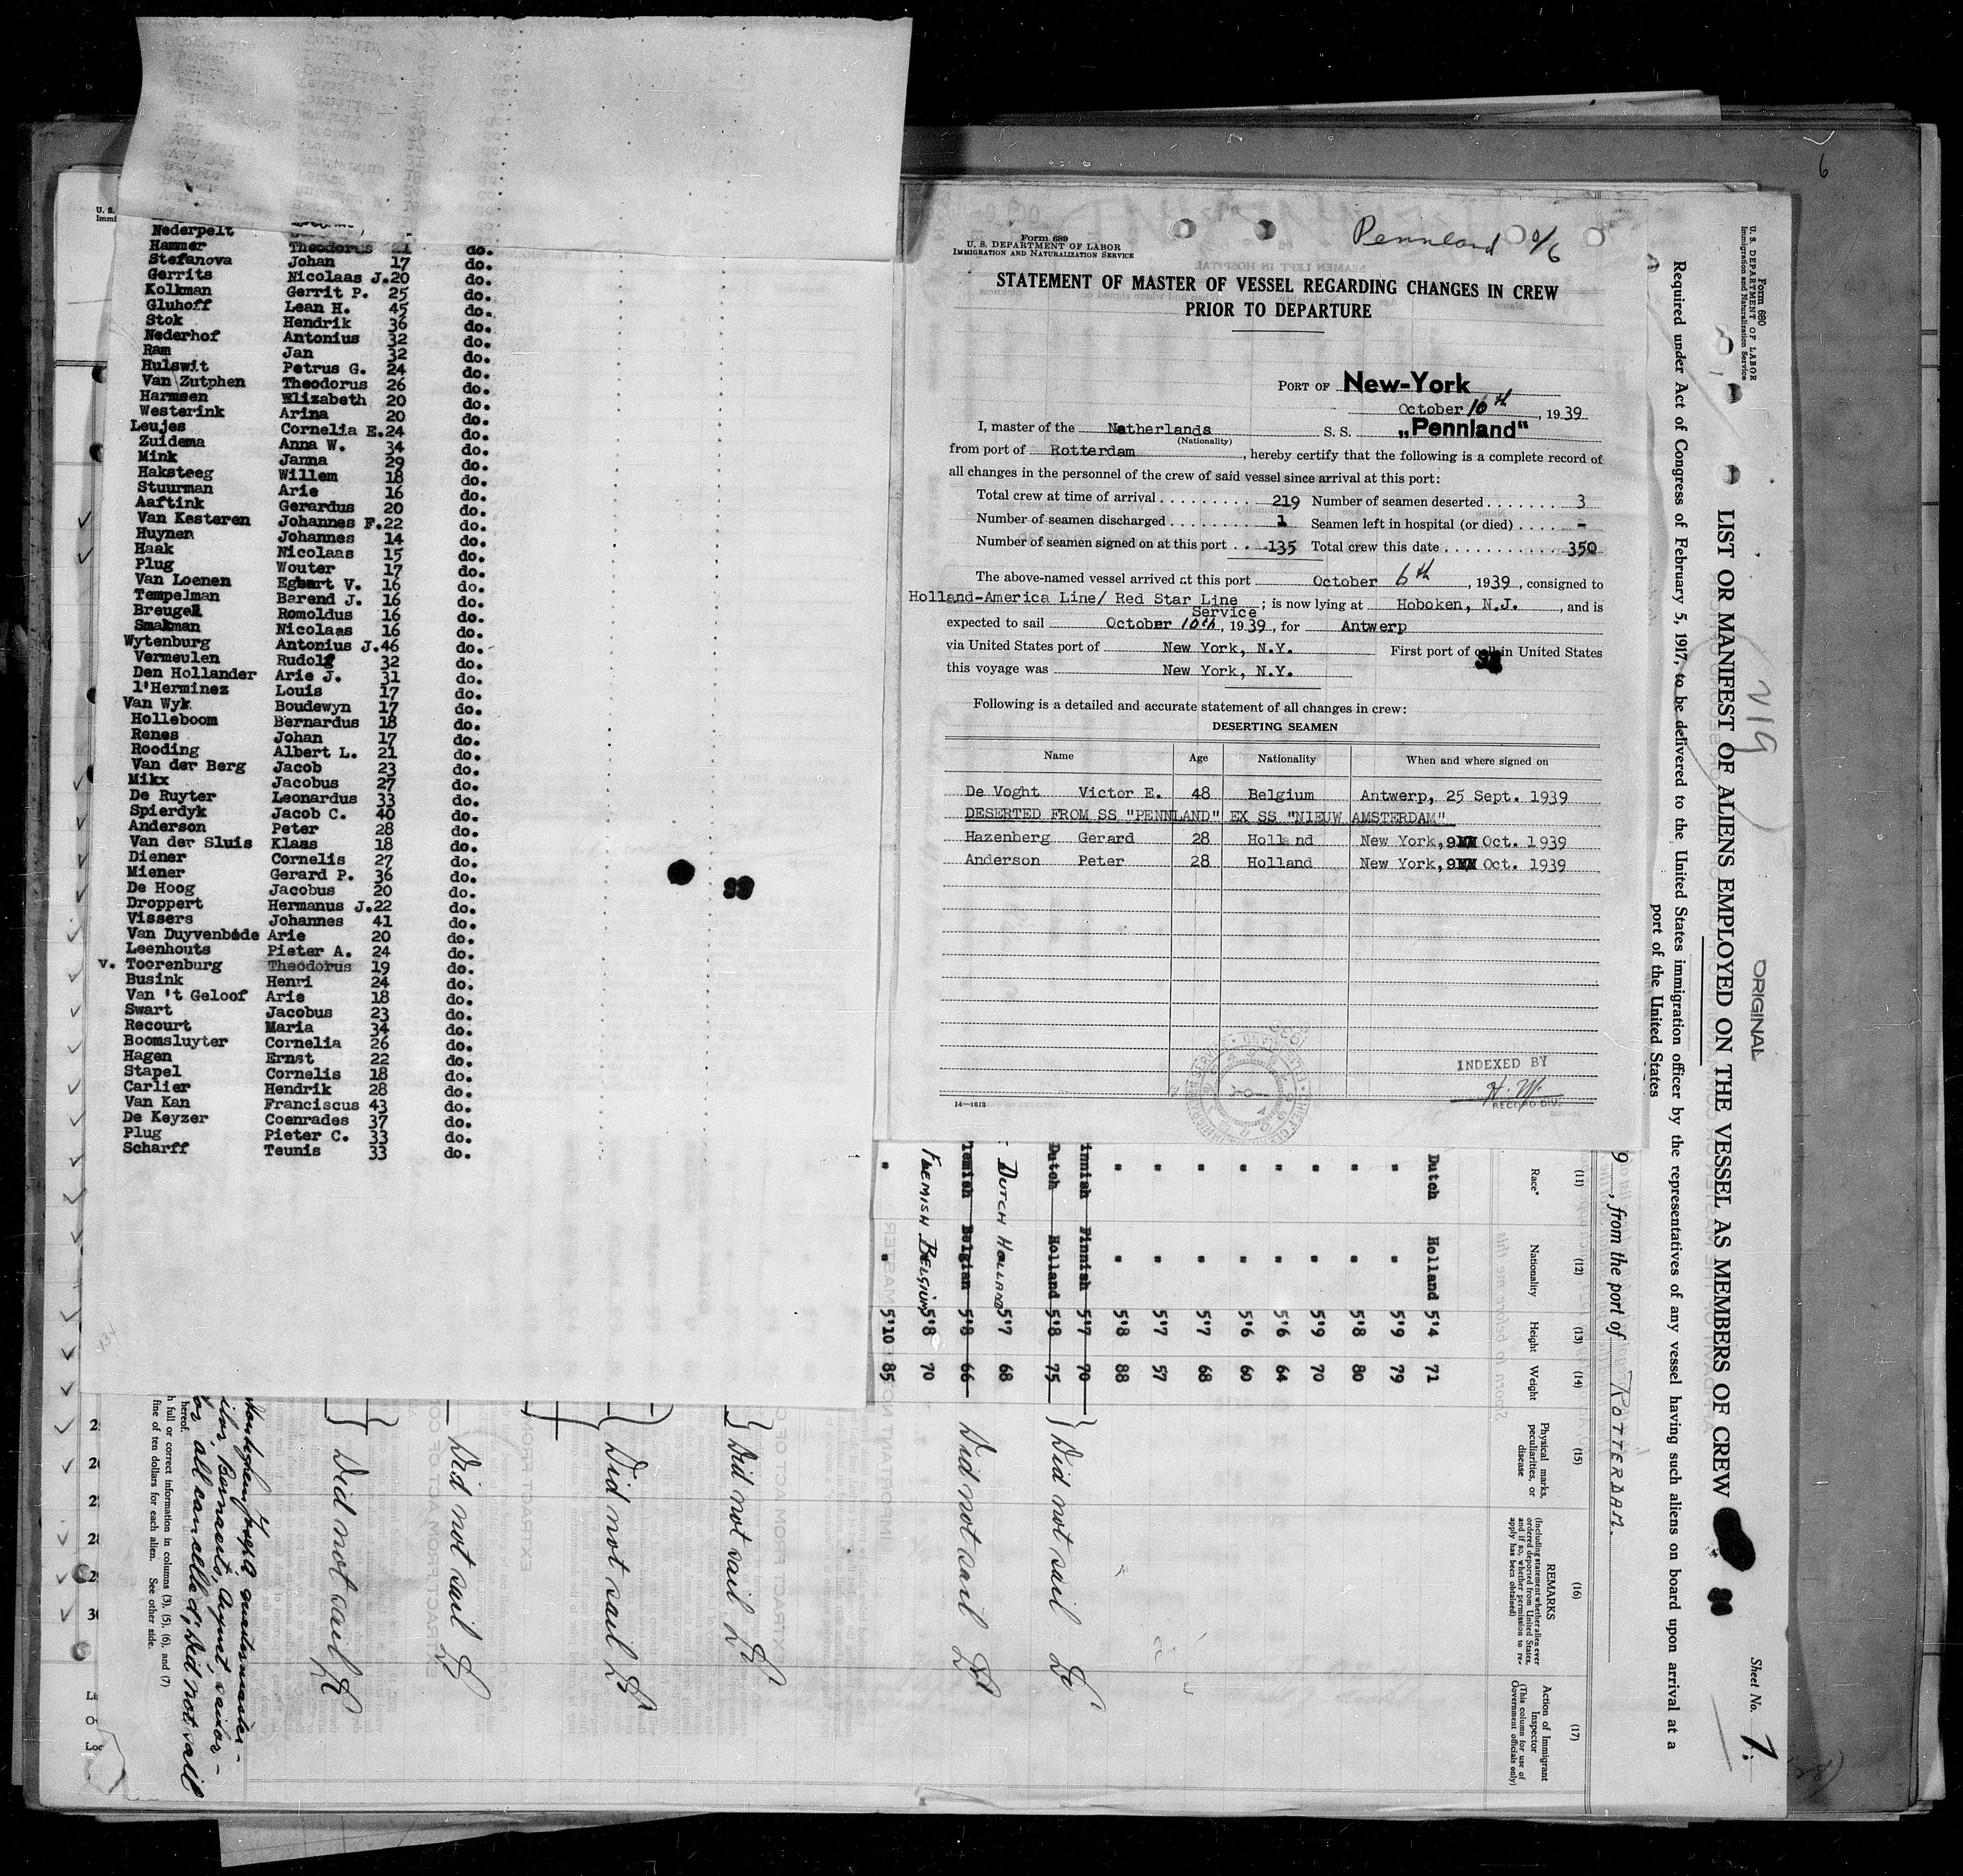 Nederpelt
Hammer Theodorus 21 do.
Stefanova Johan 17 do.
Gerrits Nicolaas J. 20 do.
Kolkman Gerrit P. 25 do.
Gluhoff Lean H. 45 do.
Stok Hendrik 36 do.
Nederhof Antonius 32 do.
Ram Jan 32 do.
Hulswit Petrus G. 24 do.
Van Zutphen Theodorus 26 do.
Harmsen Elizabeth 20 do.
Westerink Arina 20 do.
Leujes Cornelia E. 24 do.
Zuidema Anna W. 34 do.
Mink Janna 29 do.
Haksteeg Willem 18 do.
Stuurman Arie 16 do.
Aaftink Gerardus 20 do.
Van Kesteren Johannes F. 22 do.
Huynen Johannes 14 do.
Haak Nicolaas 15 do.
Plug Wouter 17 do.
Van Loenen Egbert V. 16 do.
Tempelman Barend J. 16 do.
Breugel Romoldus 16 do.
Smakman Nicolaas 16 do.
Wytenburg Antonius J. 46 do.
Vermeulen Rudolf 32 do.
Den Hollander Arie J. 31 do.
l'Herminez Louis 17 do.
Van Wyk Boudewyn 17 do.
Holleboom Bernardus 18 do.
Renes Johan 17 do.
Rooding Albert L. 21 do.
Van der Berg Jacob 23 do.
Mikx Jacobus 27 do.
De Ruyter Leonardus 33 do.
Spierdyk Jacob C. 40 do.
Anderson Peter 28 do.
Van der Sluis Klaas 18 do.
Diener Cornelis 27 do.
Miener Gerard P. 36 do.
De Hoog Jacobus 20 do.
Droppert Hermanus J. 22 do.
Vissers Johannes 41 do.
Van Duyvenbode Arie 20 do.
Leenhouts Pieter A. 24 do.
v. Toorenburg Theodorus 19 do.
Busink Henri 24 do.
Van 't Geloof Arie 18 do.
Swart Jacobus 23 do.
Recourt Maria 34 do.
Boomsluyter Cornelia 26 do.
Hagen Ernst 22 do.
Stapel Cornelis 18 do.
Carlier Hendrik 28 do.
Van Kan Franciscus 43 do.
De Keyzer Coenrades 37 do.
Plug Pieter C. 33 do.
Scharff Teunis 33 do.
134
Pennland 0/6
Form 689
U. S. DEPARTMENT OF LABOR
IMMIGRATION AND NATURALIZATION SERVICE
STATEMENT OF MASTER OF VESSEL REGARDING CHANGES IN CREW
PRIOR TO DEPARTURE
PORT OF New-York
October 10th, 1939
I, master of the Netherlands S. S. „Pennland"
(Nationality)
from port of Rotterdam, hereby certify that the following is a complete record of
all changes in the personnel of the crew of said vessel since arrival at this port:
Total crew at time of arrival 219 Number of seamen deserted 3
Number of seamen discharged 1 Seamen left in hospital (or died) -
Number of seamen signed on at this port 135 Total crew this date 350
The above-named vessel arrived at this port October 6th, 1939, consigned to
Holland-America Line/ Red Star Line Service; is now lying at Hoboken, N.J., and is
expected to sail October 10th, 1939, for Antwerp
via United States port of New York, N.Y. First port of call in United States
this voyage was New York, N.Y.
Following is a detailed and accurate statement of all changes in crew:
DESERTING SEAMEN
Name Age Nationality When and where signed on
De Voght Victor E. 48 Belgium Antwerp, 25 Sept. 1939
DESERTED FROM SS "PENNLAND" EX SS "NIEUW AMSTERDAM"
Hazenberg Gerard 28 Holland New York, 9 Oct. 1939
Anderson Peter 28 Holland New York, 9 Oct. 1939
INDEXED BY
H. W.
RECORD DIV.
14—1613
Form 680
U. S. DEPARTMENT OF LABOR
Immigration and Naturalization Service
ORIGINAL
219
LIST OR MANIFEST OF ALIENS EMPLOYED ON THE VESSEL AS MEMBERS OF CREW
Sheet No. 7.
Required under Act of Congress of February 5, 1917, to be delivered to the United States immigration officer by the representatives of any vessel having such aliens on board upon arrival at a
port of the United States
9, from the port of ROTTERDAM.
(11) (12) (13) (14) (15) (16) (17)
Race* Nationality Height Weight Physical marks, peculiarities, or disease REMARKS (Including statement whether alien ever ordered deported from United States, and if so, whether permission to reapply has been obtained) Action of Immigrant Inspector (This column for use of Government officials only)
Dutch Holland 5'4 71
" " 5'9 79
" " 5'8 80
" " 5'9 70
" " 5'6 64
" " 5'6 60
" " 5'7 68
" " 5'7 57
" " 5'8 88
innish Finnish 5'7 70
Dutch Holland 5'8 75 Did not sail
DUTCH HOLLAND 5'7 68
lemish Belgian 5'8 66 Did not sail
FLEMISH BELGIUM 5'8 70
" " 5'10 85
Did not sail
Did not sail
Did not sail
Did not sail
all cancelled, Did not sail
hereof.
h full or correct information in columns (3), (5), (6), and (7)
fine of ten dollars for each alien. See other side.